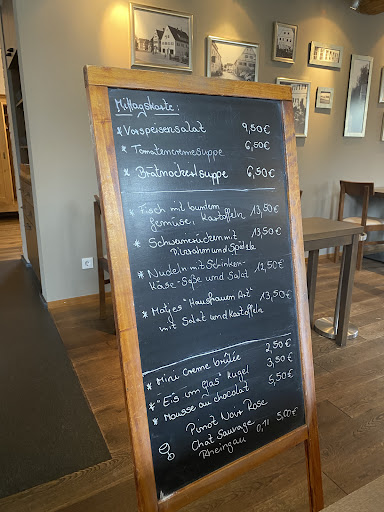 Mittagskarte:
* Vorspeisensalat 9,50€
* Tomatencremesuppe 6,50€
* Brätnockerlsuppe 6,50€
* Fisch mit buntem
Gemüse, Kartoffeln 13,50€
13,50€
und Spätzle
* Nudeln mit Schinken-
Käse-Soße und Salat 12,50€
* Matjes "Hausfrauen Art" 13,50€
mit Salat und Kartoffeln
* Mini creme brûlée 2,50€
* "Eis im Glas" Kugel 3,50€
* Mousse au chocolat 5,50€
Pinot Noir Rose
Chat Sauvage
Rheingau 0,1l 5,00€